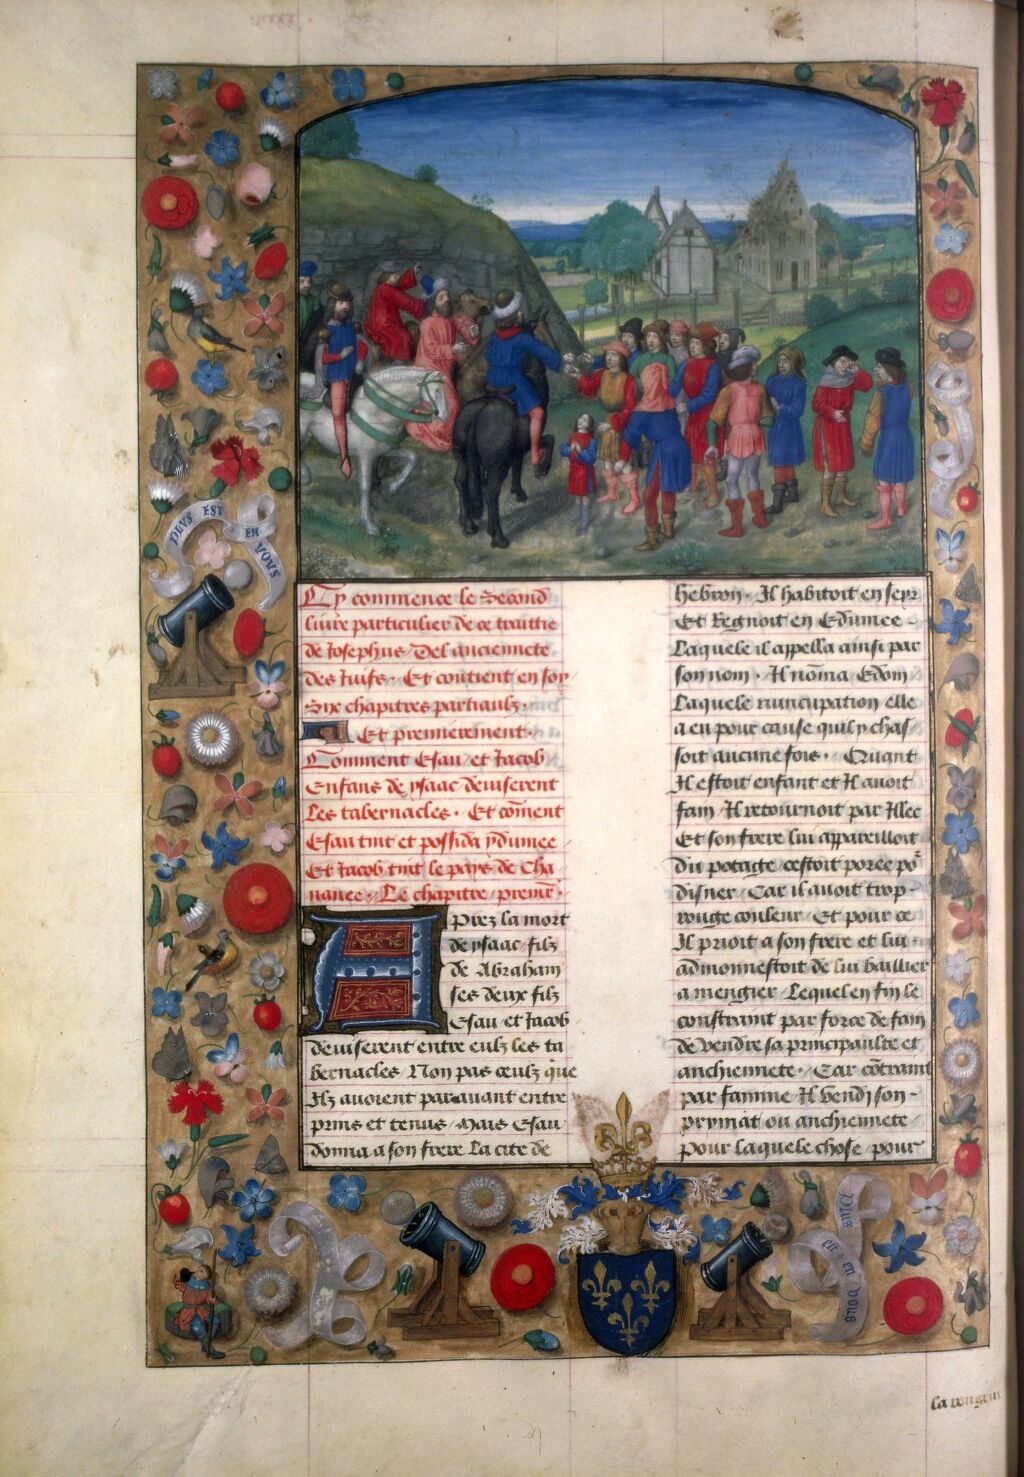 PLUS EST
EN
VOUS
Cy commence le Second
livre particulier de ce traittie
de Josephus/ Del anciennete
des Juifs. Et contient en soy
Six chapitres partiaulz.
Et premierement.
Comment Esau et Jacob
Enfans de ysaac deviserent
Les tabernacles. Et cōment
Esau tint et possida ydumee
Et Jacob tint le pays de Cha
nanee. Le chapitre premr̄.
Aprez la mort
de ysaac filz
de Abraham
ses deux filz
Esau et Jacob
deviserent entre eulz les ta
bernacles Non pas ceulz que
Ilz avoient paravant entre
prins et tenus. Mais Esau
donna a son frere La cite de
hebron. Il habitoit en seyr
Et Regnoit en Edumee.
Laquele il appella ainsi par
son nom. Il nōma Edom
Laquele nuncupation elle
a eu pour cause quil y chas/
soit aucune fois. Quant
Il estoit enfant et Il avoit
fam Il retournoit par Illec
Et son frere lui appareilloit
du potage cestoit poree por
disner Car il avoit trop
rouge couleur Et pour ce
Il prioit a son frere et lui
admonnestoit de lui baillier
a mengier Lequel en fin le
constraint par force de fam
de vendre sa principaulte et
anchiennete. Car cōtraint
par famine Il vendi son
prymat ou anchiennete
pour laquele chose pour
Plus
est
en vous